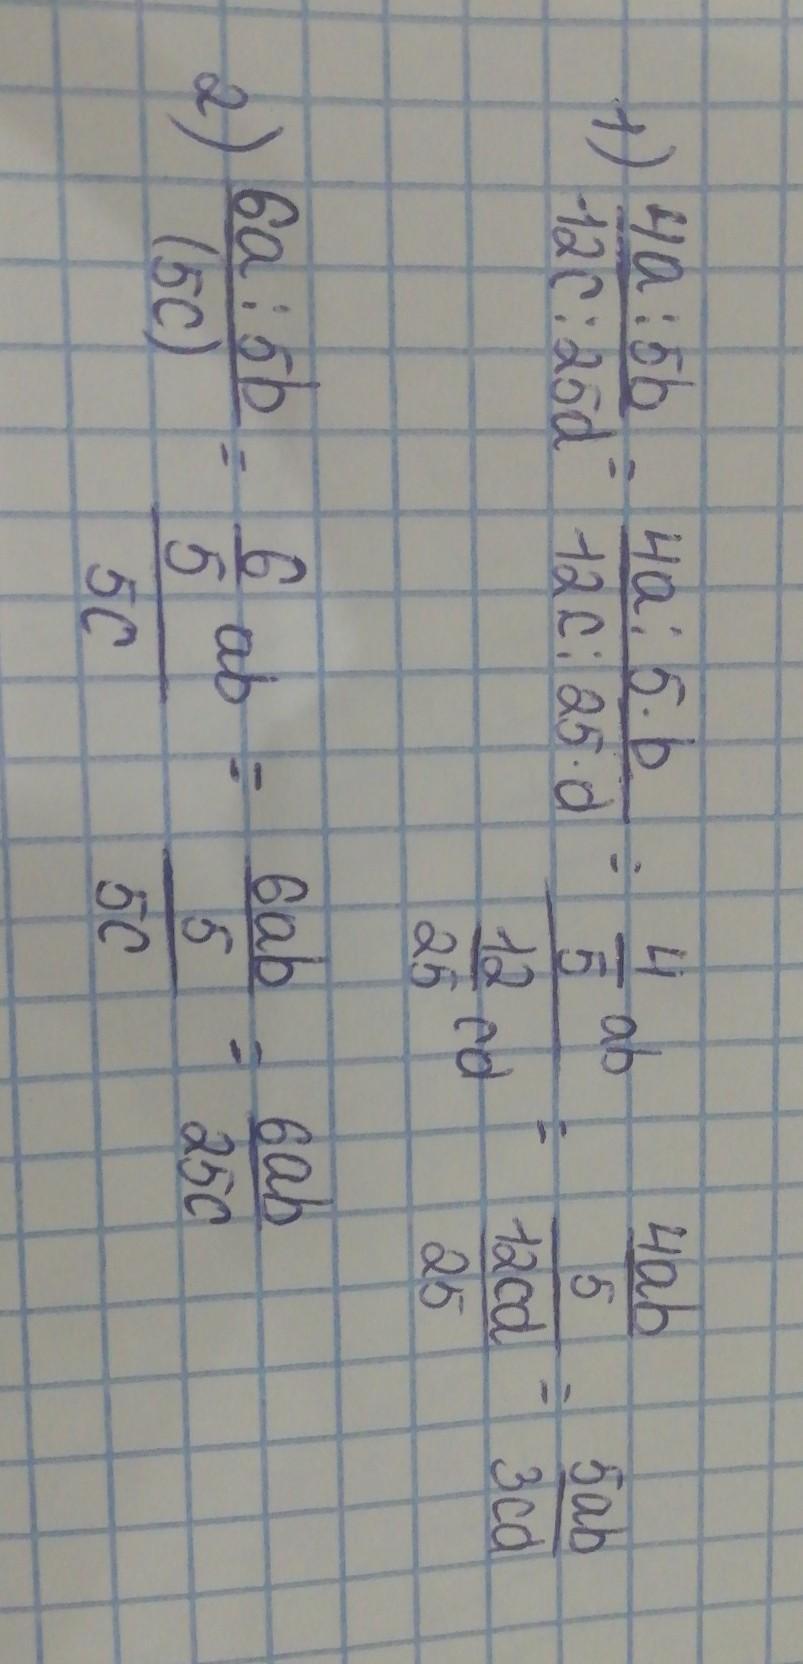 1) \frac{4a : 5b}{12c : 25d} = \frac{4a : 5 \cdot b}{12c : 25 \cdot d} = \frac{\frac{4}{5} ab}{\frac{12}{25} cd} = \frac{\frac{4ab}{5}}{\frac{12cd}{25}} = \frac{5ab}{3cd}
2) \frac{6a : 5b}{(5c)} = \frac{\frac{6}{5} ab}{5c} = \frac{\frac{6ab}{5}}{5c} = \frac{6ab}{25c}